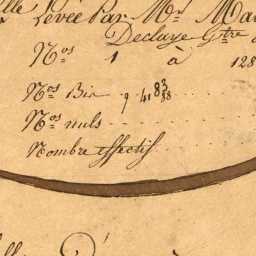 Levée Par Mr
Declaye Gtre
Nos 1 à 128
Nos Bis 9 41 83 88
Nos nuls
Nombre effectif